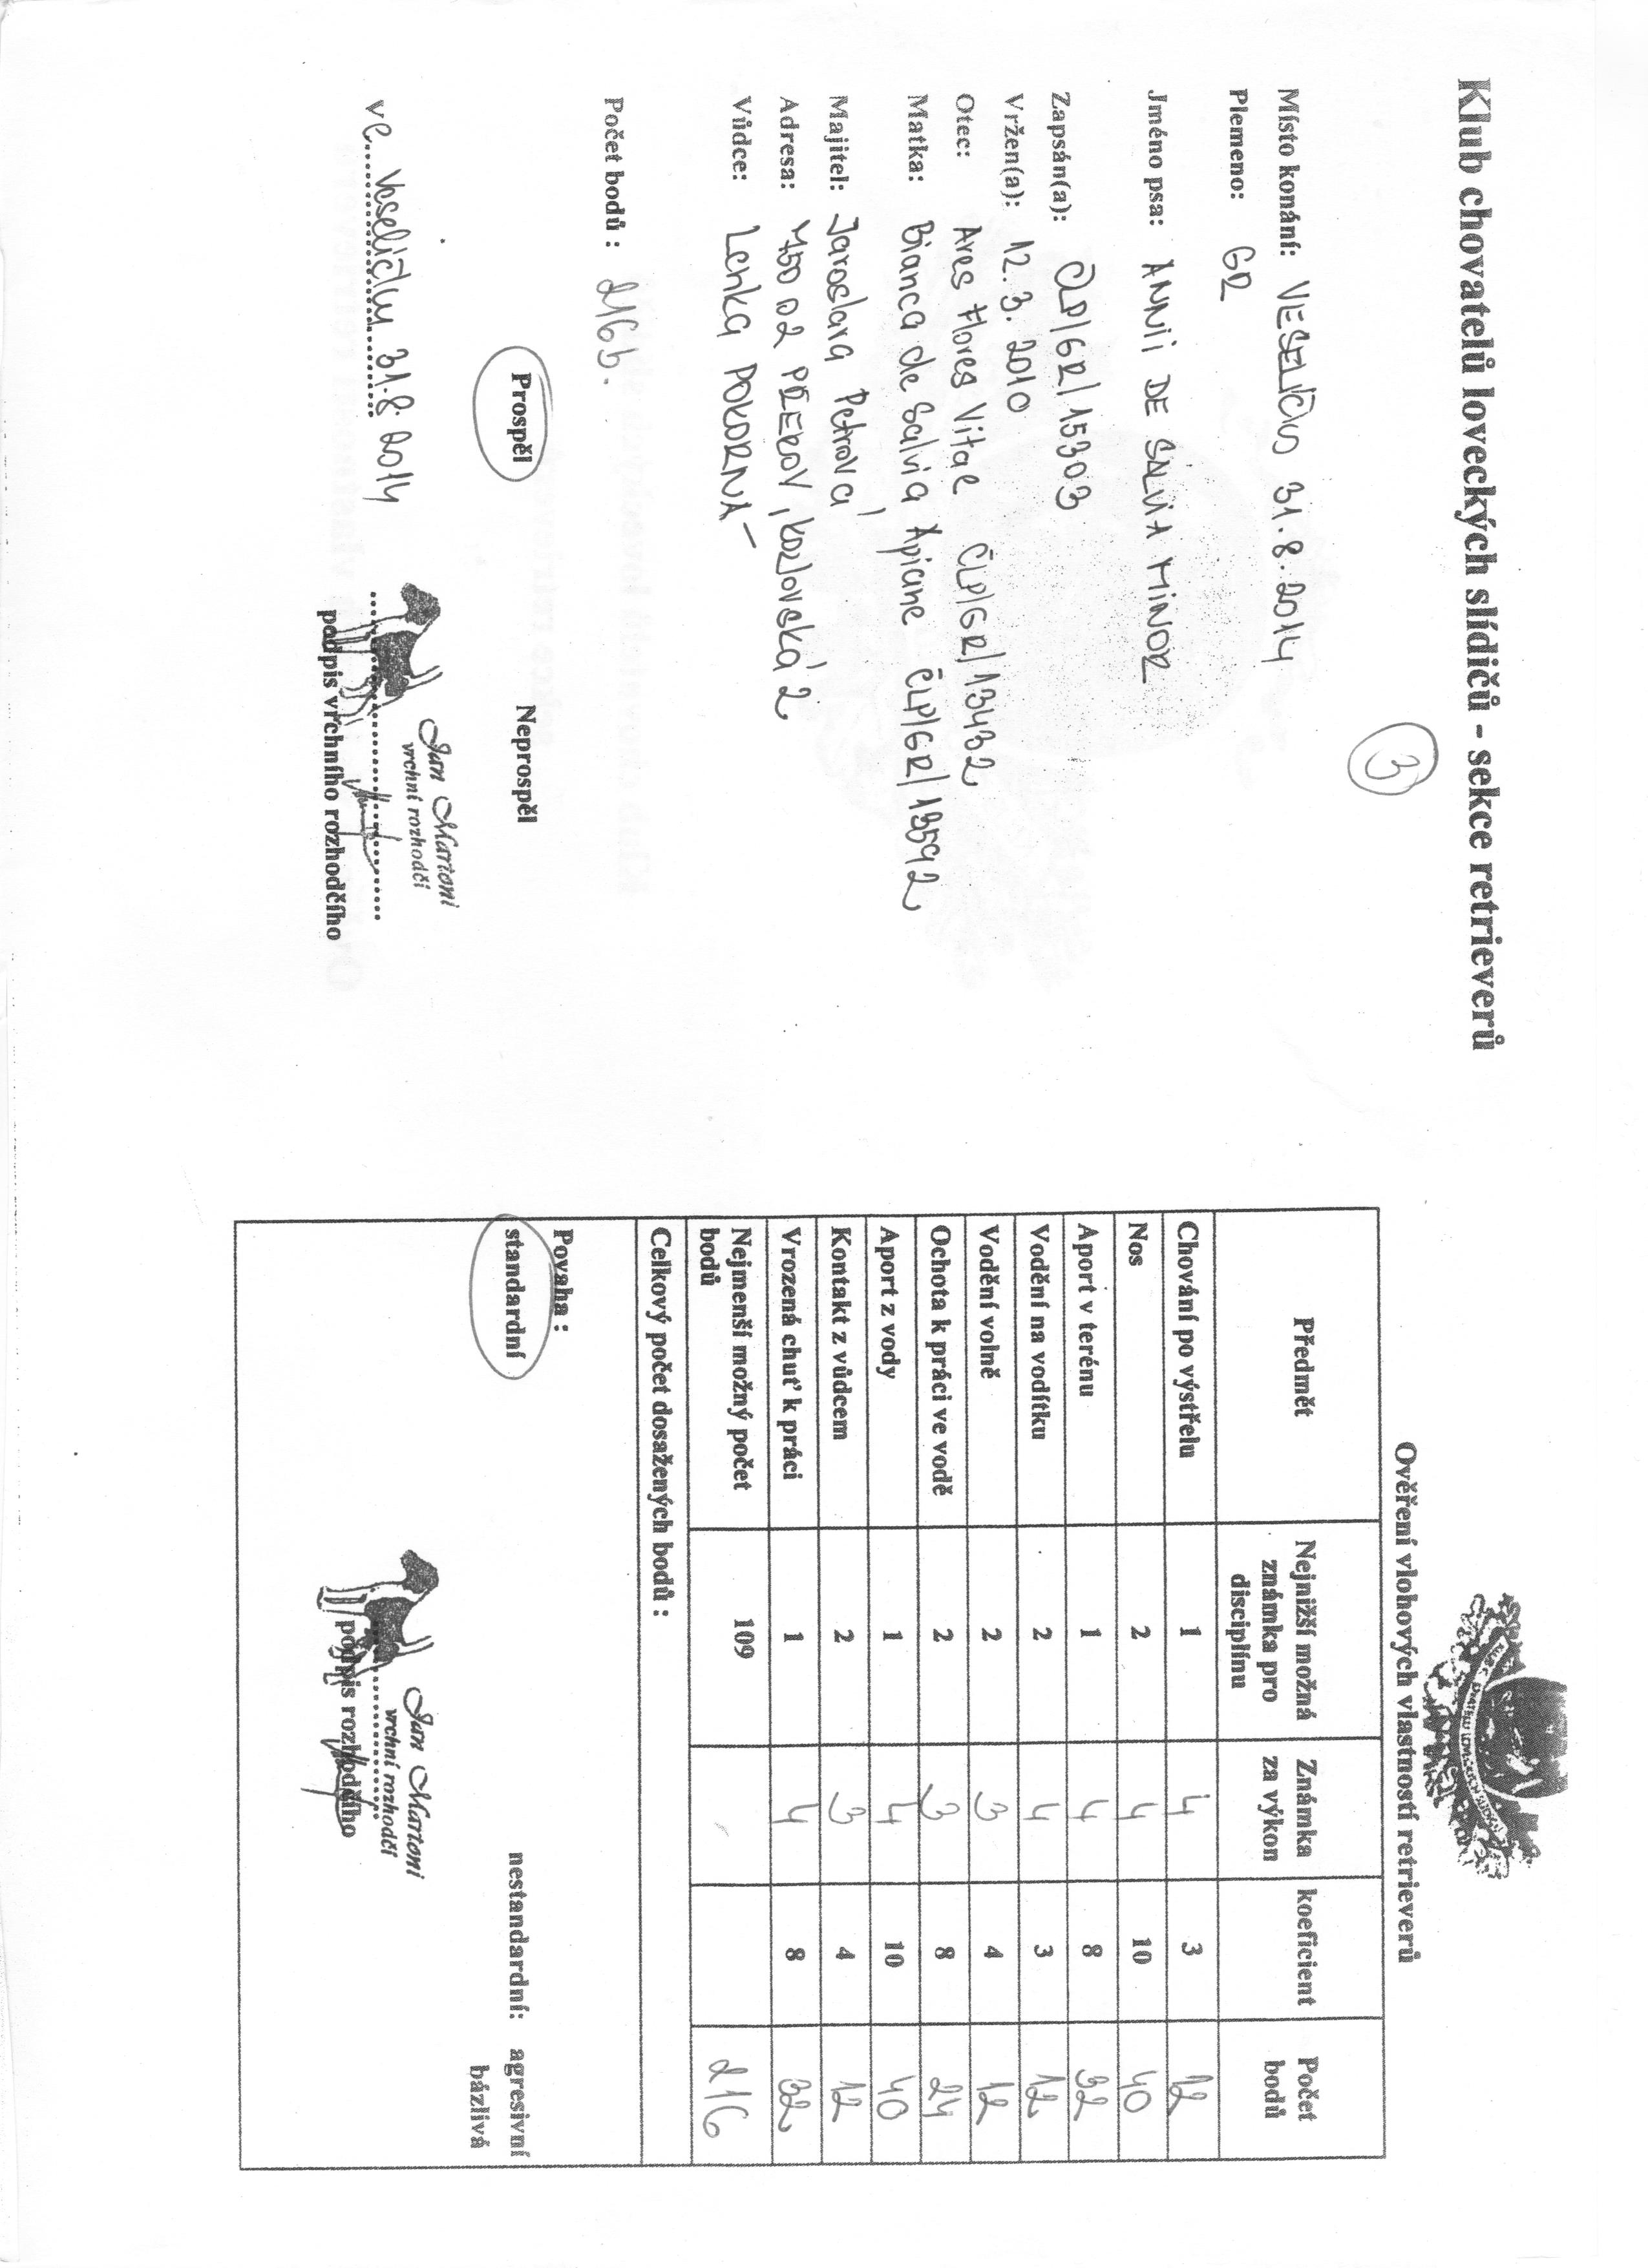 Klub chovatelů loveckých slídičů - sekce retrieverů
3
Místo konání: VESELÍČKO 31.8.2014
Plemeno: GR
Jméno psa: ANNII DE SALVIA MINOR
Zapsán(a): ČLP/GR/15303
Vržen(a): 12.3.2010
Otec: Ares Flores Vitae ČLP/GR/13432
Matka: Bianca de Salvia Apiane ČLP/GR/13592
Majitel: Jaroslava Petrová
Adresa: 750 02 PŘEROV, Kozlovská 2
Vůdce: Lenka POKORNÁ
Počet bodů : 216 b.
Prospěl Neprospěl
ve Veselíčku 31.8.2014
Jan Martoni
vrchní rozhodčí
podpis vrchního rozhodčího
Ověření vlohových vlastností retrieverů
Předmět Nejnižší možná známka pro disciplínu Známka za výkon koeficient Počet bodů
Chování po výstřelu 1 4 3 12
Nos 2 4 10 40
Aport v terénu 1 4 8 32
Vodění na vodítku 2 4 3 12
Vodění volně 2 3 4 12
Ochota k práci ve vodě 2 3 8 24
Aport z vody 1 4 10 40
Kontakt z vůdcem 2 3 4 12
Vrozená chuť k práci 1 4 8 32
Nejmenší možný počet bodů 109 216
Celkový počet dosažených bodů :
Povaha :
standardní nestandardní: agresivní
bázlivá
Jan Martoni
vrchní rozhodčí
podpis rozhodčího